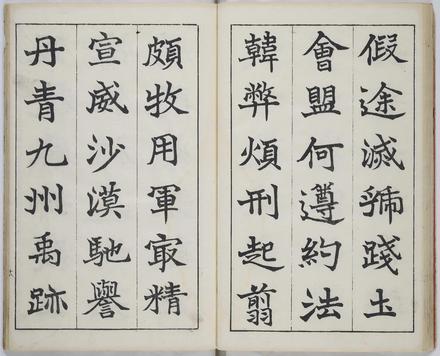 假途滅虢踐土
會盟何遵約法
韓弊煩刑起翦
頗牧用軍㝡精
宣威沙漠馳譽
丹青九州禹跡